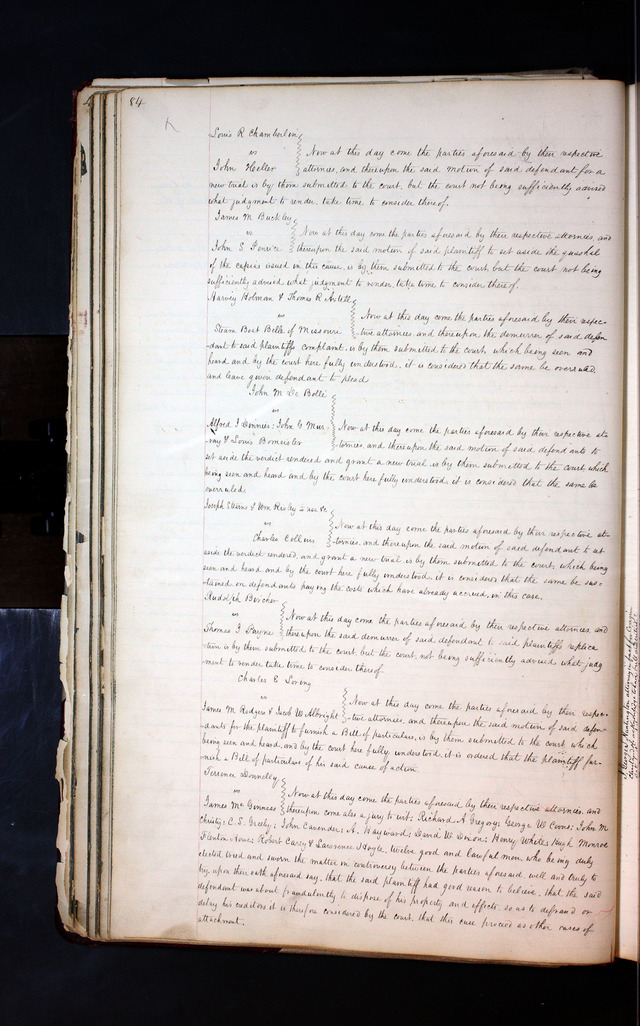 84
K
Louis R Chamberlin
vs
John Heller
Now at this day come the parties aforesaid by their respective
attornies, and thereupon the said motion of said defendant for a
new trial is by them submitted to the court, but the court not being sufficiently advised
what judgment to render, take time to consider thereof.
James M Buckley
vs
John S
Now at this day come the parties aforesaid by their respective attornies, and
thereupon the said motion of said plaintiff to set aside the quashal
of the capias issued in this cause, is by them submitted to the court, but the court not being
sufficiently advised what judgment to render, take time to consider thereof.
Harvey Holman & Thomas R
vs
Steam Boat Belle of Missouri
Now at this day come the parties aforesaid by their respec-
-tive attornies, and thereupon, the demurrer of said defen
-dant to said plaintiffs complaint, is by them submitted to the court, which being seen and
heard and by the court here fully understood, it is considered that the same be overruled
and leave given defendant to plead
John M De Bolle
vs
Alfred J John C Mur-
-ray & Louis Bomeister
Now at this day come the parties aforesaid by their respective at-
-tornies, and thereupon the said motion of said defendants to
set aside the verdict rendered and grant a new trial, is by them submitted to the court, which
being seen and heard and by the court here fully understood, it is considered that the same be
overruled.
Joseph Stearns & Wm Risley
vs
Charles Collins
Now at this day come the parties aforesaid by their respective at-
-tornies, and thereupon the said motion of said defendant to set
aside the verdict rendered, and grant a new trial, is by them submitted to the court, which being
seen and heard and by the court here fully understood, it is considered that the same be sus-
-tained, on defendants paying the costs which have already accrued, in this case.
Rudolph Bircher
vs
Thomas J Payne
Now at this day come the parties aforesaid by their respective attornies, and
thereupon the said demurrer of said defendant to said plaintiffs replica
-tion is by them submitted to the court, but the court, not being sufficiently advised what judg
-ment to render take time to consider thereof.
Charles E Loring
vs
James M Rodgers & Jacob W Albright
Now at this day come the parties aforesaid by their respec-
-tive attornies, and thereupon the said motion of said defen-
-dants for the plaintiff to furnish a Bill of particulars, is by them submitted to the court, which
being seen and heard, and by the court here fully understood, it is ordered that the plaintiff fur-
-nish a Bill of particulars of his said cause of action.
Terrence Donnelly
vs
James McGinness
Now at this day come the parties aforesaid by their respective attornies, and
thereupon come also a jury to wit, Richard A Gregory; George W Coons; John M
Christy; C. S. Greely; John Cavender; A. Hayward; David W Dixon; Henry White; Hugh Monroe
Robert Carry & Lawrence Hoyle, twelve good and lawful men, who being duly
elected tried and sworn the matter in controversy between the parties aforesaid, well and truly to
try, upon their oath aforesaid say, that the said plaintiff had good reason to believe, that the said
defendant was about fraudulently to dispose of his property and effects so as to defraud or
delay his creditors it is therefore considered by the court, that this case proceed as other cases of
attachment.